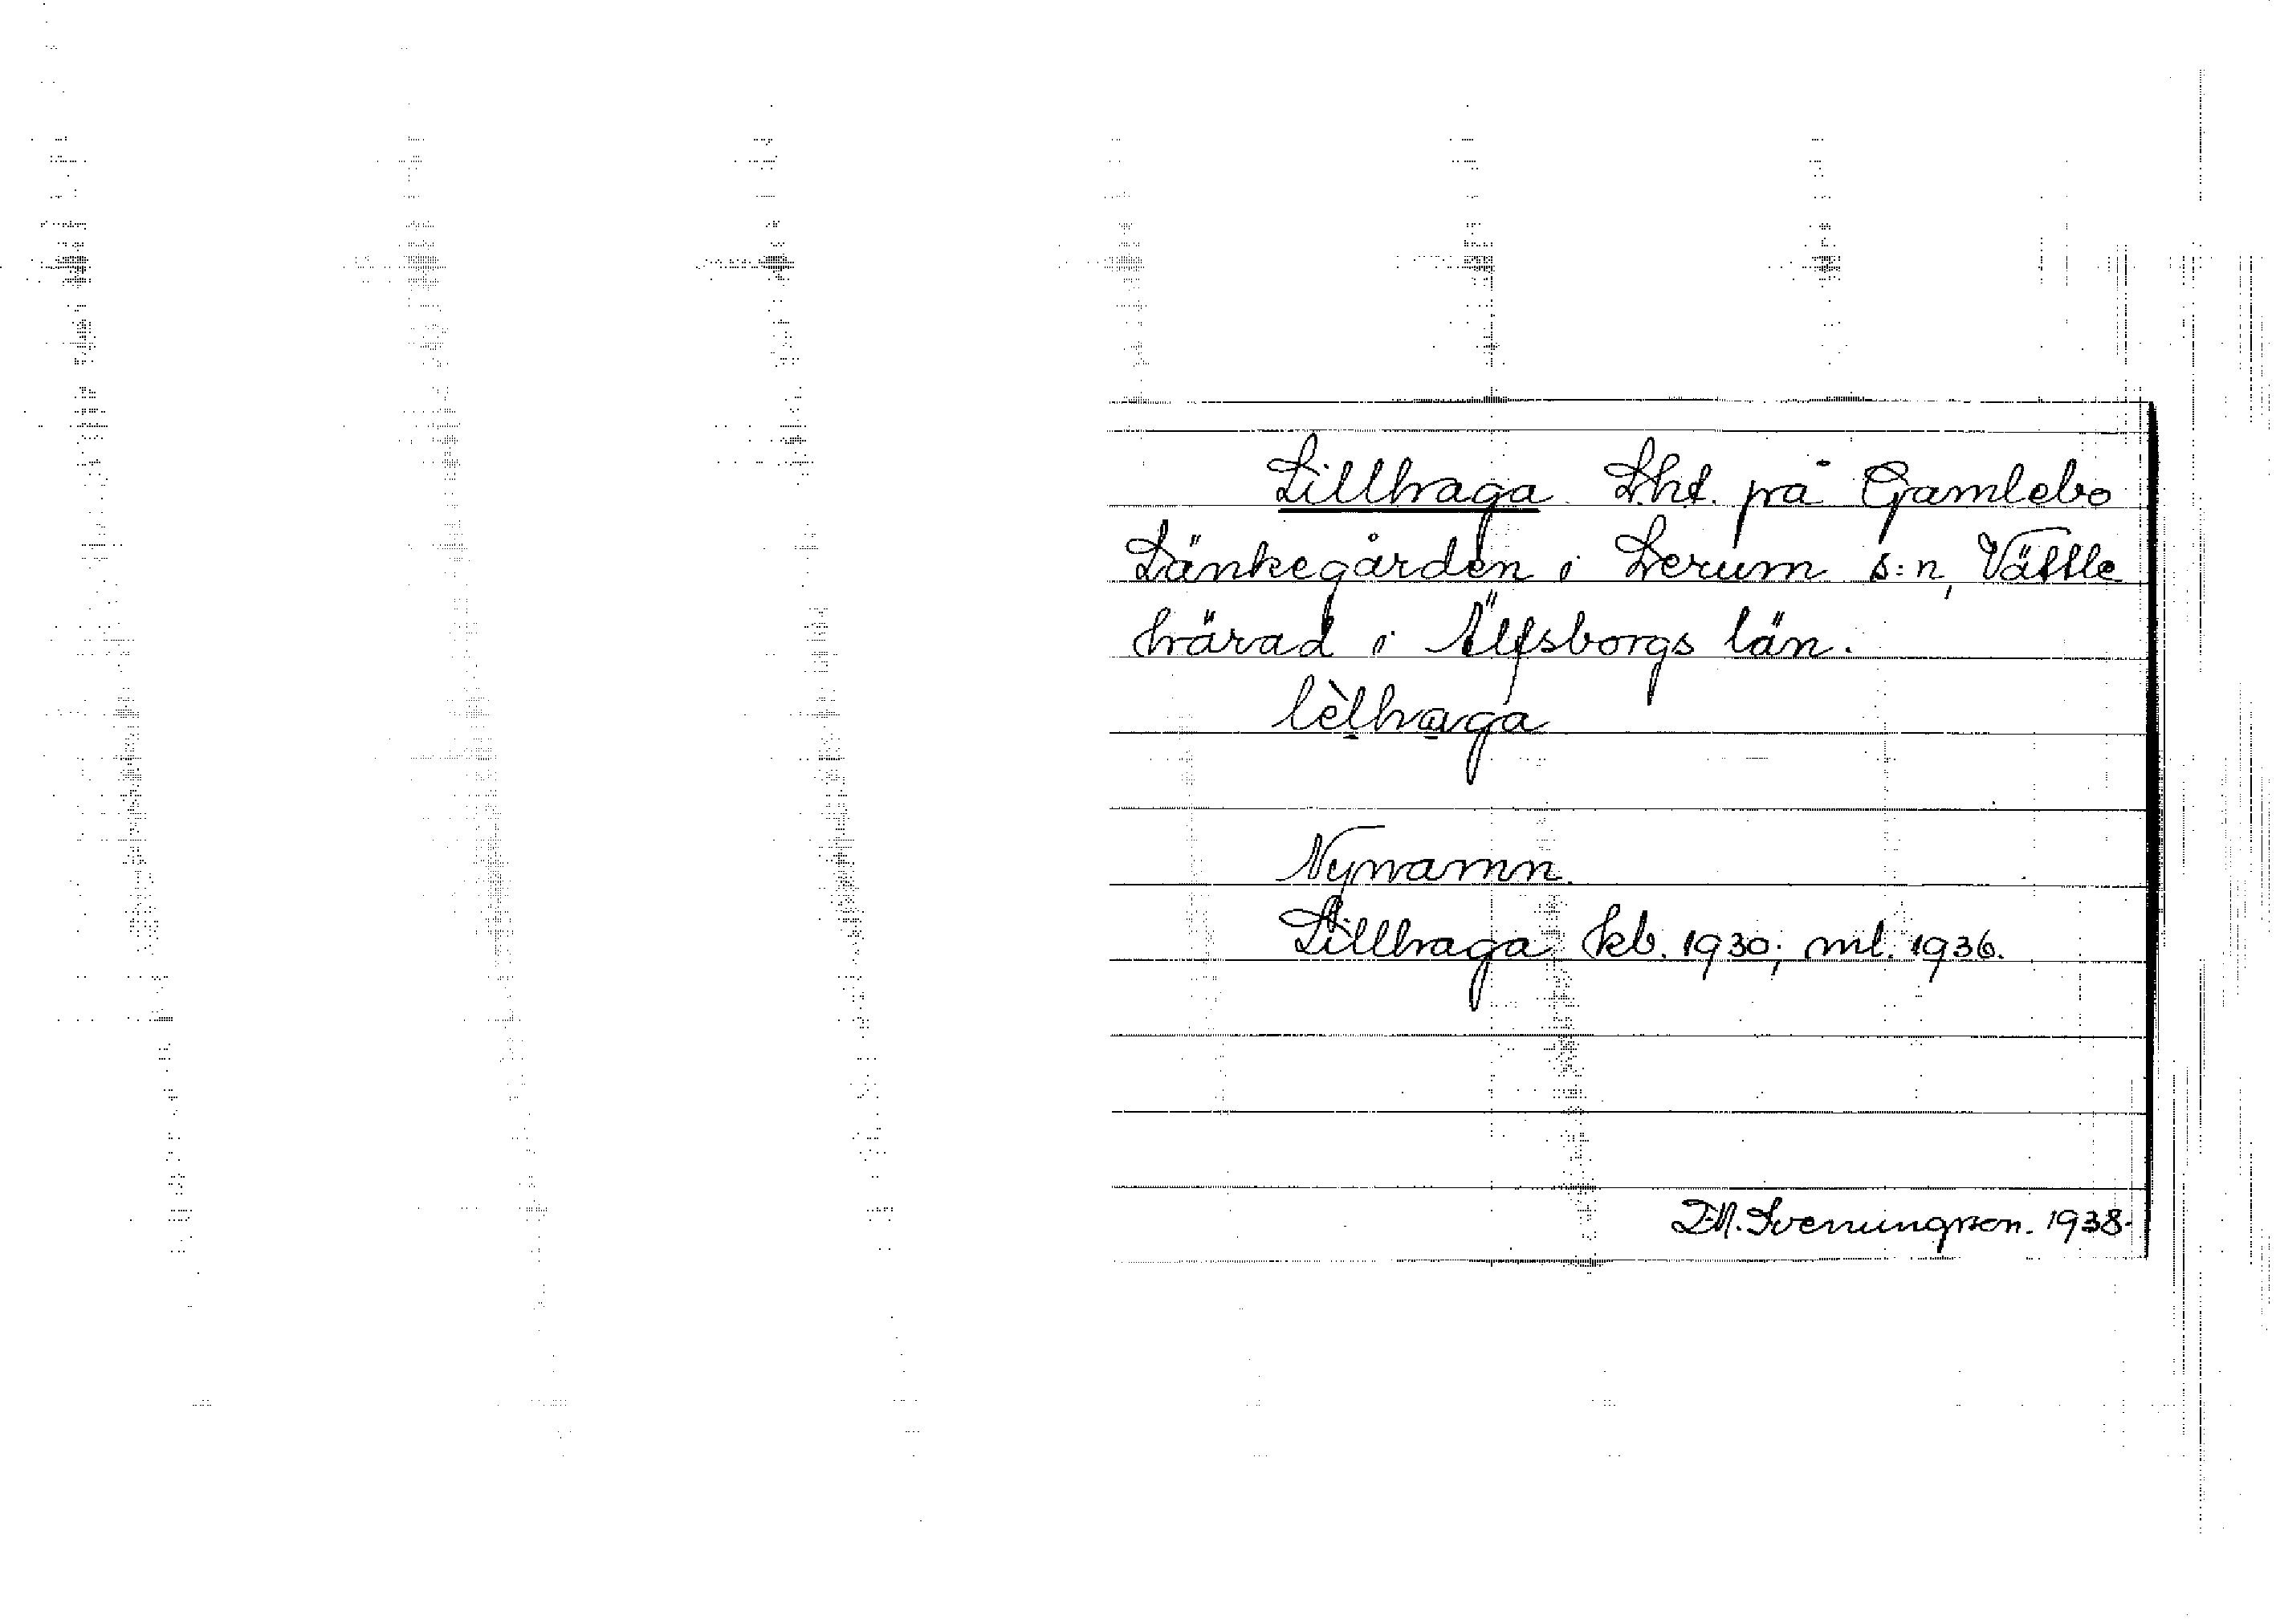 Lillhaga Lht. på Gamlebo
Länkegården i Lerum s:n, Vättle
härad i Älfsborgs län.
lèlhaga
Nynamn.
Lillhaga kb. 1930; ml. 1936.
Svenungsson. 1938.